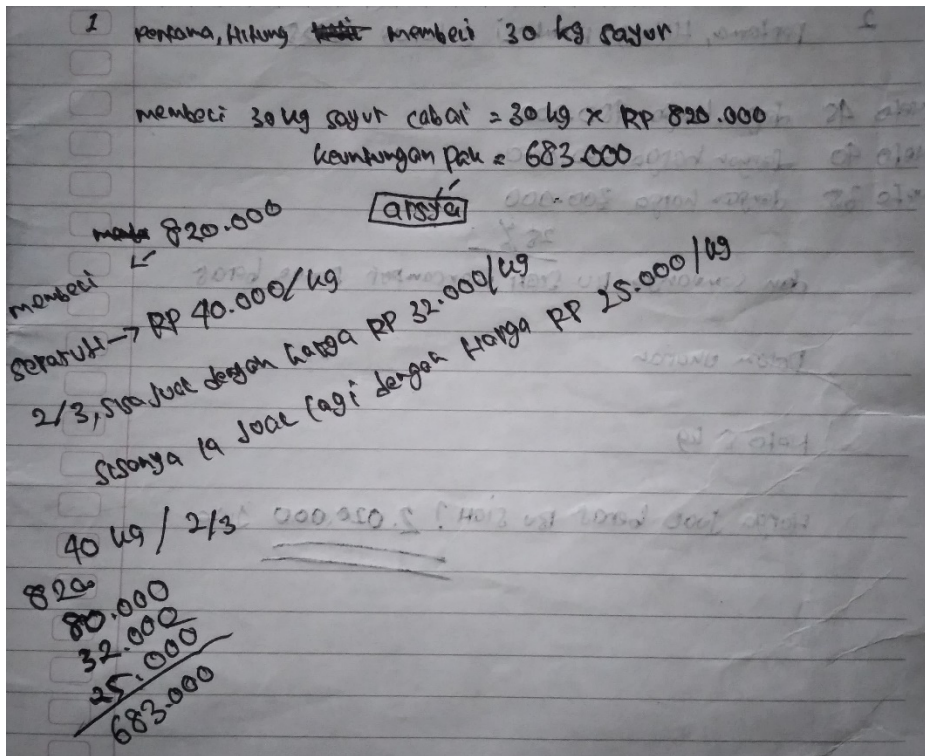 1 pertama, Hitung membeli 30 kg sayur
membeli 30 kg sayur cabai = 30 kg x RP 820.000
keuntungan pak = 683.000
arsya
820.000
membeli
separuh → RP 40.000/kg
2/3, sisa jual dengan harga RP 32.000/kg
sisanya ia jual lagi dengan Harga RP 25.000/kg
40 kg / 2/3
820
80.000
32.000
25.000
683.000